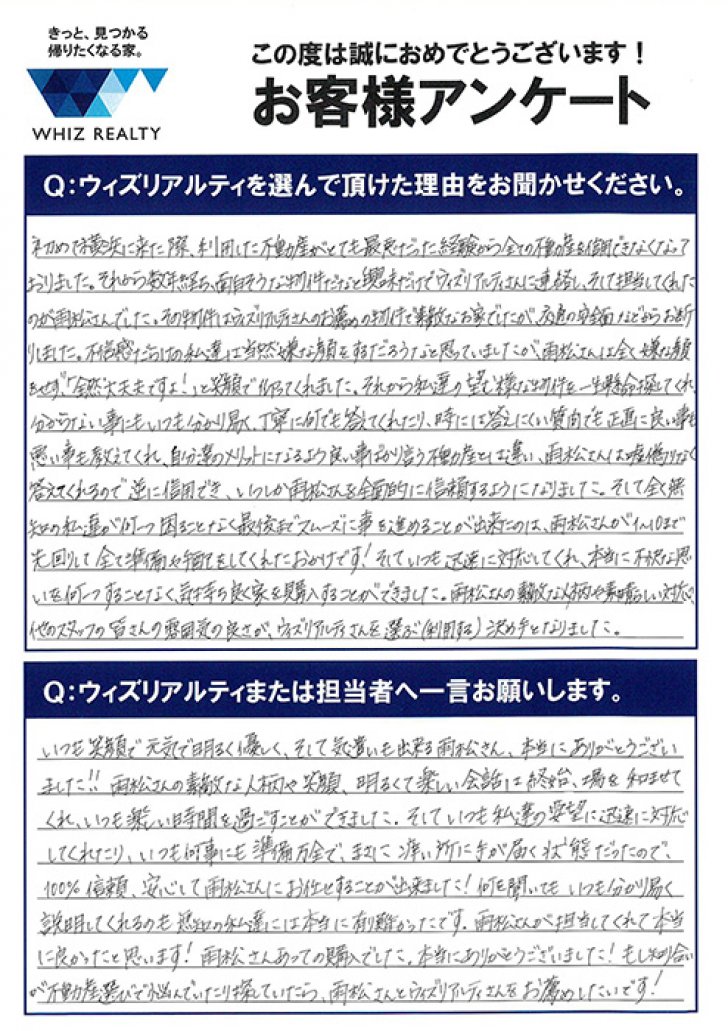 きっと、見つかる
帰りたくなる家。
WHIZ REALTY
この度は誠におめでとうございます！
お客様アンケート
Q：ウィズリアルティを選んで頂けた理由をお聞かせください。
初めて横浜に来た際、利用した不動産がとても最悪だった経験から全ての不動産を信用できなくなって
おりました。それから数年経ち、面白そうな物件だなと興味だけでウィズリアルティさんに連絡し、そして担当してくれた
のが雨松さんでした。その物件はウィズリアルティさんのお薦めの物件で素敵なお家でしたが、交通の安全面などからお断
りしました。不信感だらけの私達は当然嫌な顔をするだろうなと思っていましたが、雨松さんは全く嫌な顔
をせず、「全然大丈夫ですよ！」と笑顔で仰ってくれました。それから私達の望む様な物件を一生懸命探してくれ、
分からない事にもいつも分かり易く、丁寧に何でも答えてくれたり、時には答えにくい質問でも正直に良い事も
悪い事も教えてくれ、自分達のメリットになるよう良い事ばかり言う不動産とは違い、雨松さんは嘘偽りなく
答えてくれるので逆に信用でき、いつしか雨松さんを全面的に信頼するようになりました。そして全く無
知の私達が何一つ困ることなく最後までスムーズに事を進めることが出来たのは、雨松さんが1〜10まで
先回りして全て準備や手配をしてくれたおかげです！そしていつも迅速に対応してくれ、本当に不快な思
いを何一つすることなく、気持ち良く家を購入することができました。雨松さんの素敵な人柄や素晴らしい対応、
他のスタッフの皆さんの雰囲気の良さが、ウィズリアルティさんを選ぶ（利用する）決め手となりました。
Q：ウィズリアルティまたは担当者へ一言お願いします。
いつも笑顔で元気で明るく優しく、そして気遣いも出来る雨松さん、本当にありがとうござい
ました!! 雨松さんの素敵な人柄や笑顔、明るくて楽しい会話は終始、場を和ませて
くれ、いつも楽しい時間を過ごすことができました。そしていつも私達の要望に迅速に対応
してくれたり、いつも何事にも準備万全で、まさに痒い所に手が届く状態だったので、
100%信頼、安心して雨松さんにお任せすることが出来ました！何を聞いてもいつも分かり易く
説明してくれるのも無知の私達には本当に有難かったです。雨松さんが担当してくれて本当
に良かったと思います！雨松さんあっての購入でした。本当にありがとうございました！もし知り合い
が不動産選びで悩んでいたり探していたら、雨松さんとウィズリアルティさんをお薦めしたいです！